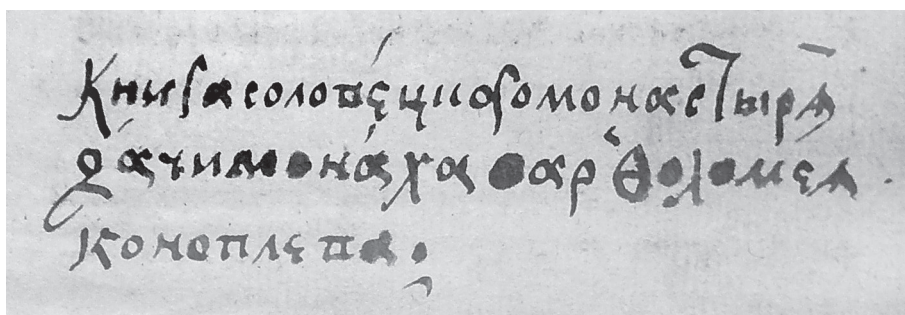 Книга соловецкого монастырѧ
дачи монаха варѳоломеѧ
коноплева.